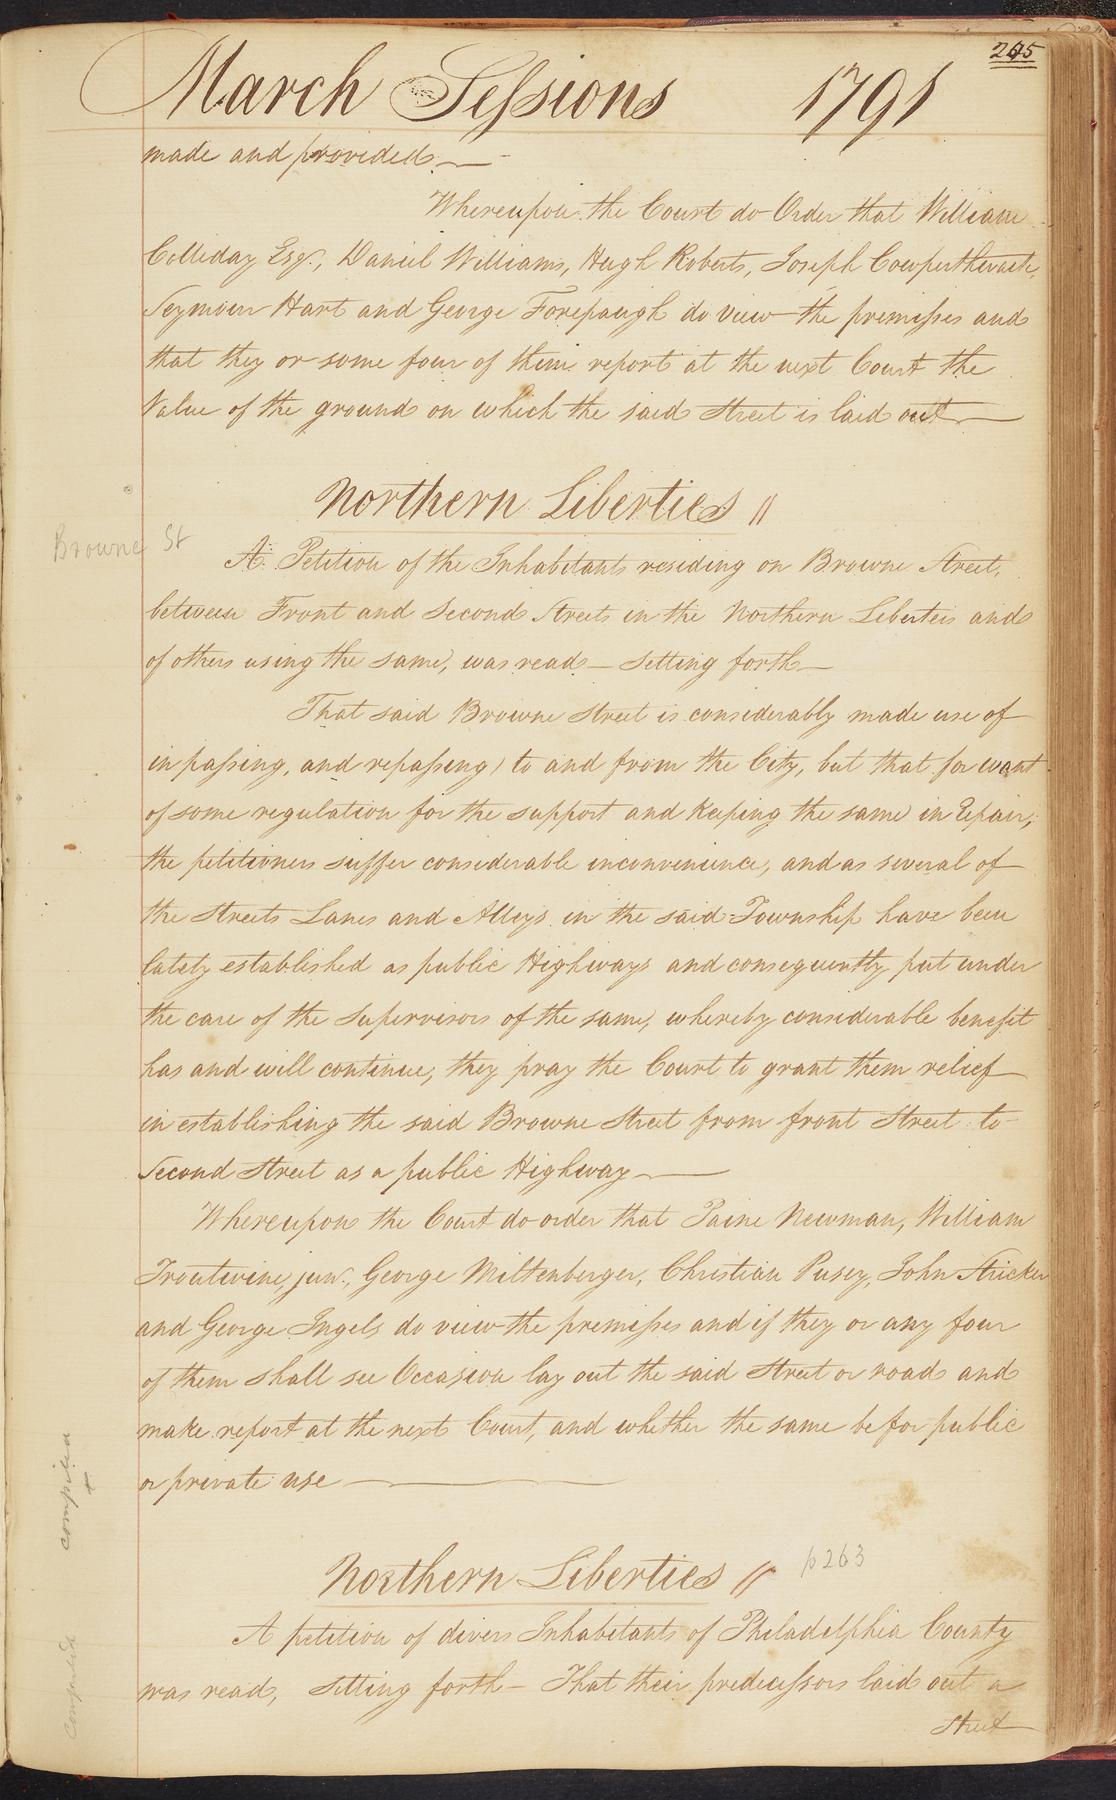 245
March Sessions 1791
made and provided
Whereupon the Court do Order that William
Colliday Esqr., Daniel Williams, Hugh Roberts, Joseph Cowperthwaite,
Seymour Hart and George Forepaugh do view the premisses and
that they or some four of them report at the next Court the
Value of the ground on which the said Street is laid out
Northern Liberties //
Browne St
A Petition of the Inhabitants residing on Browne Street,
between Front and Second Streets in the Northern Liberteis and
of others using the same, was read — setting forth —
That said Browne Street is considerably made use of
in passing, and repassing, to and from the City, but that for want
of some regulation for the support and keeping the same in Repair,
the petitioners suffer considerable inconvenience, and as several of
the Streets Lanes and Alleys in the said Township have been
lately established as public Highways and consequently put under
the care of the Supervisors of the same, whereby considerable benefit
has and will continue, they pray the Court to grant them relief
in establishing the said Browne Street from front Street to
Second Street as a public Highway
Whereupon the Court do order that Paine Newman, William
Troutwine, junr., George Miltenberger, Christian Pusey, John Stricker
and George Ingels do view the premisses and if they or any four
of them shall see Occasion lay out the said Street or road and
make report at the next Court, and whether the same be for public
or private use
compiled
Northern Liberties // p263
A petition of divers Inhabitants of Philadelphia County
was read, setting forth — That their predecessors laid out a
Street